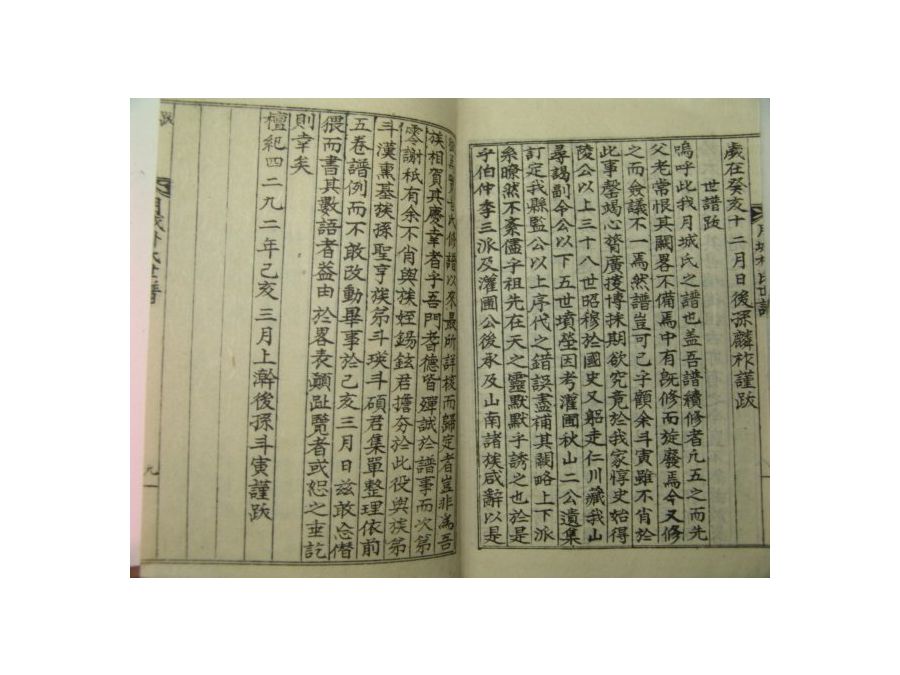 歲在癸亥十二月日後孫麟祚謹跋
世譜跋
嗚呼此我月城氏之譜也盖吾譜續修者凢五之而先
父老常恨其闕畧不備焉中有旣修而旋廢焉今又修
之而僉議不一焉然譜豈可已乎顧余斗寅雖不肖於
此事罄竭心膂廣搜博採期欲究竟於我家惇史始得
陵公以上三十八世昭穆於國史又躬走仁川藏我山
尋謁副令公以下五世墳塋因考灌圃秋山二公遺集
訂定我縣監公以上序代之錯誤盡補其闕略上下派
系瞭然不紊儘乎祖先在天之靈默默乎誘之也於是
乎伯仲季三派及灌圃公後承及山南諸族咸辭以是
氏修譜以來最所詳核而歸定者豈非為吾
族相賀其慶幸者乎吾門耆德皆殫誠於譜事而次第
零謝秖有余不肖與族姪錫鉉君擔夯於此役與族弟
斗漢熏基族孫聖亨族弟斗瑛斗碩君集單整理依前
五卷譜例而不敢改動畢事於己亥三月日玆敢忘僭
猥而書其數語者葢由於畧表顚趾覽者或恕之垂訖
則幸矣
檀紀四二九二年己亥三月上澣後孫斗寅謹跋
跋
九